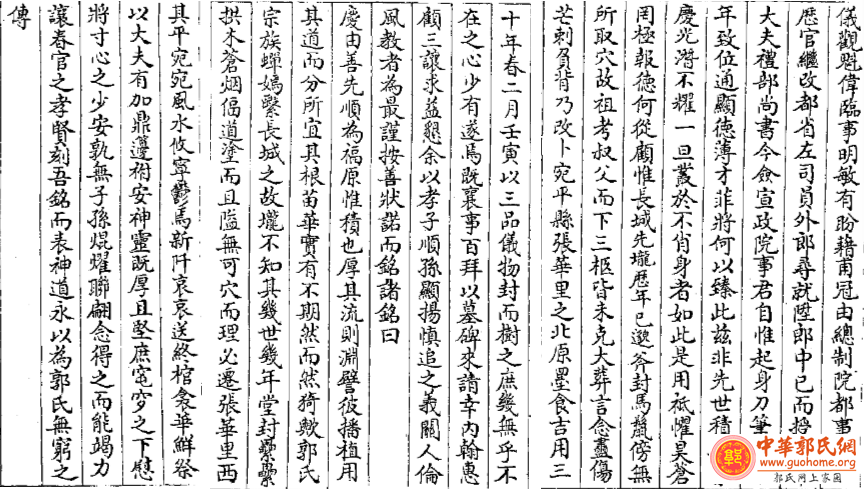 儀觀魁偉臨事明敏有盼藉甫冠由總制院都事
歷官繼改都省左司員外郎尋就陞郎中已而授
大夫禮部尚書今僉宣政院事君自惟起身刀筆
年致位通顯德薄才菲將何以臻此茲非先世積
慶光潛不耀一旦叢於不肖身者如此是用祗懼昊蒼
罔極報德何從顧惟長城先壠歷年已邈斧封馬鬛傍無
所取穴故祖考叔父而下三柩皆未克大葬言念盡傷
芒刺負背乃改卜宛平縣張華里之北原墨食吉用三
十年春二月壬寅以三品儀物封而樹之庶幾無乎不
在之心少有遂焉既襄事百拜以墓碑來請幸內翰惠
顧三讓求益懇余以孝子順孫顯揚慎追之義關人倫
風教者為最謹按善狀諾而銘諸銘曰
慶由善先順為福原惟積也厚其流則淵譬彼播植用
其道而分所宜其根苗華實有不期然而然猗歟郭氏
宗族蟬嫣繄長城之故壠不知其幾世幾年堂封纍纍
拱木蒼烟偪道塗而且隘無可穴而理必遷張華里西
其平宛宛風水攸寧鬱馬新阡哀哀送終棺衾華鮮祭
以大夫有加鼎籩祔安神靈既厚且堅庶窀穸之下慰
將寸心之少安孰無子孫焜燿聯翩念得之而能竭力
讓春官之孝賢刻吾銘而表神道永以為郭氏無窮之
傳
中華郭氏網
www.guohome.org
郭氏网上家園